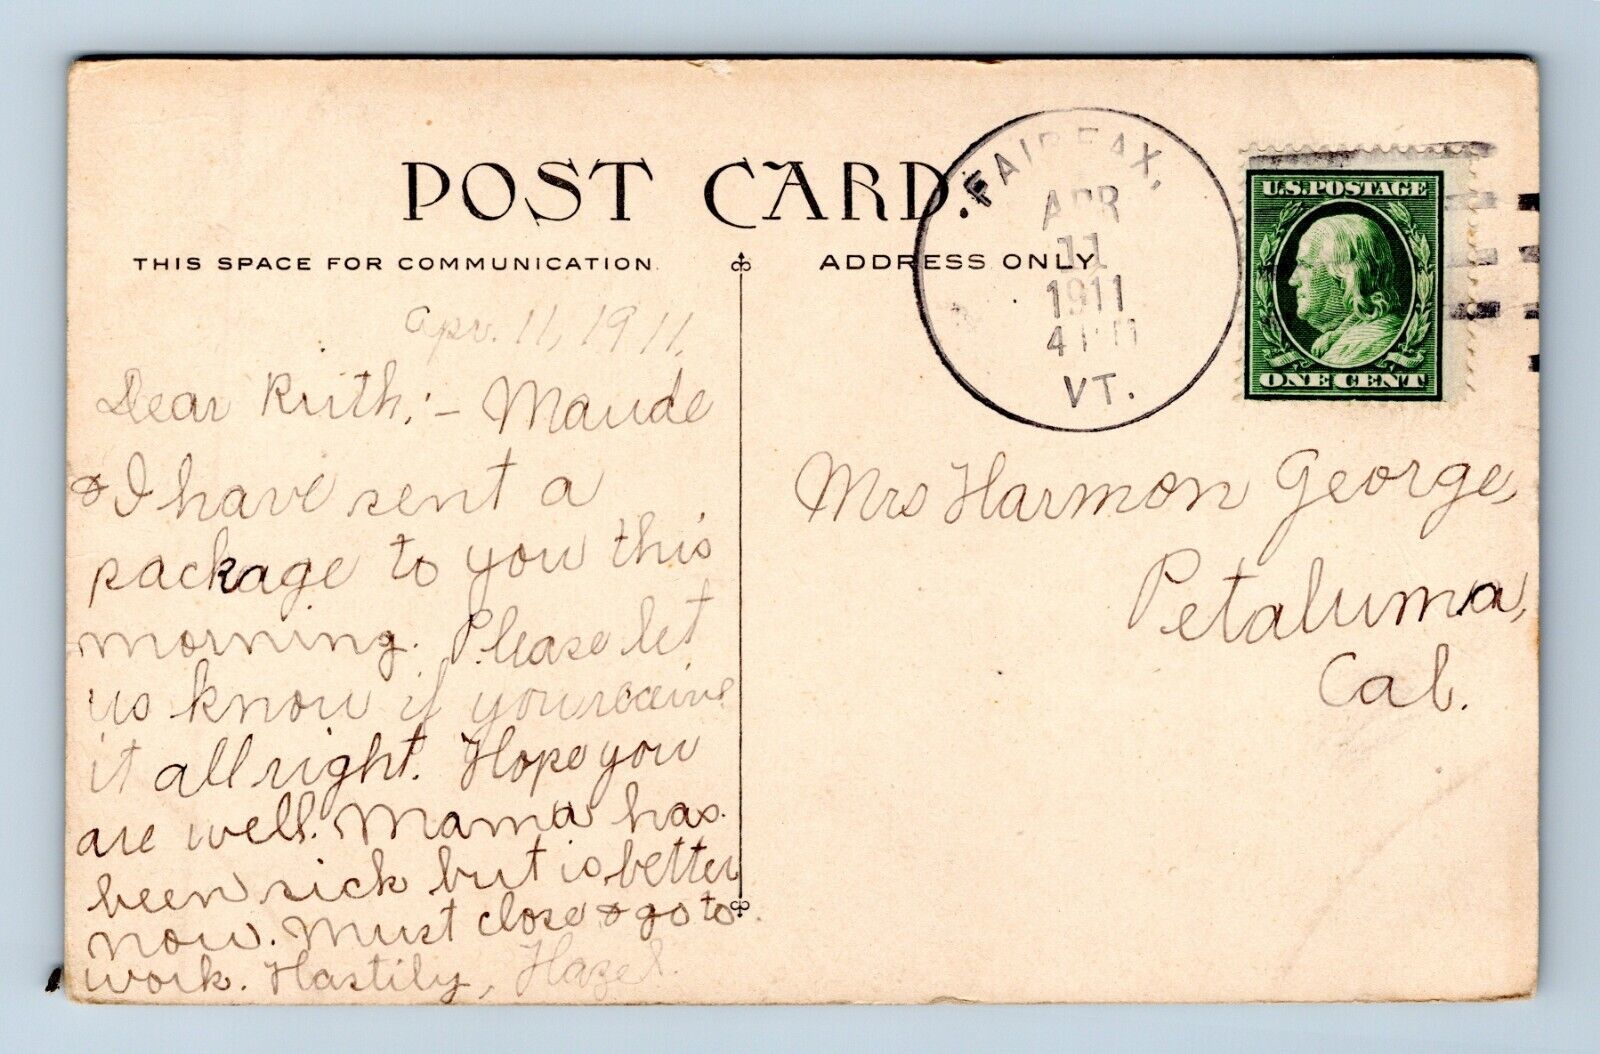 POST CARD.
THIS SPACE FOR COMMUNICATION
ADDRESS ONLY
FAIRFAX,
APR
11
1911
4 PM
VT.
U.S. POSTAGE
ONE CENT
Apr. 11, 1911.
Dear Ruth; - Maude
& I have sent a
package to you this
morning. Please let
us know if you receive
it all right. Hope you
are well. Mama has
been sick but is better
now. Must close & go to
work. Hastily, Hazel.
Mrs Harmon George,
Petaluma,
Cal.